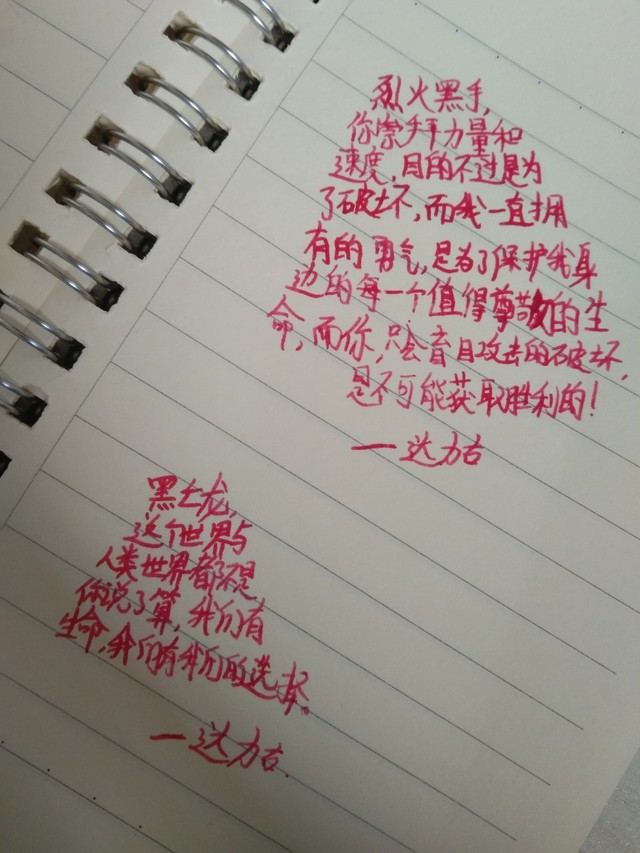 烈火黑手,
你崇拜力量和
速度,目的不过是为
了破坏,而我一直拥
有的勇气,是为了保护我身
边的每一个值得尊敬的生
命,而你,只会盲目攻击的破坏,
是不可能获取胜利的!
一达力古
黑土龙,
这个世界与
人类世界都不是
你说了算,我们有
生命,我们有我们的选择。
一达力古.